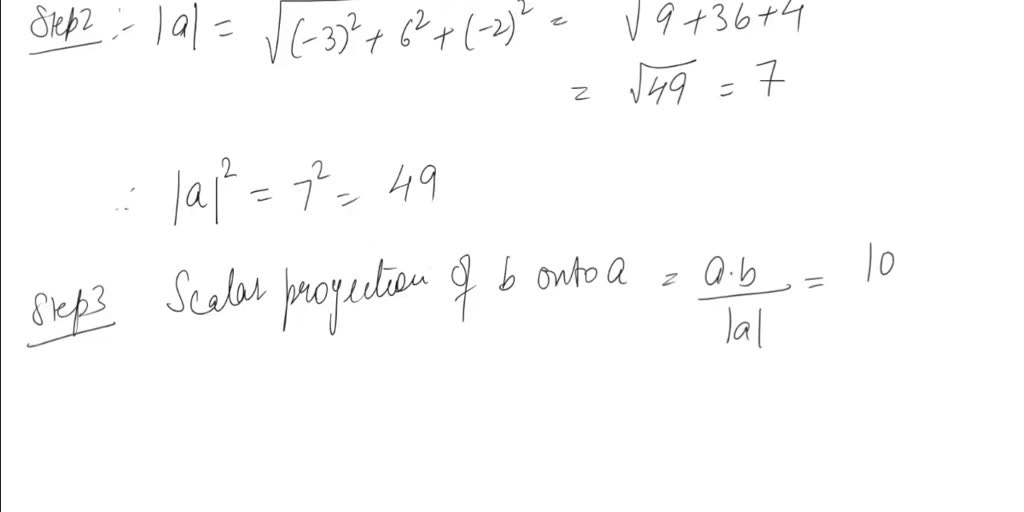 Step2 :- |a| = √(-3)² + 6² + (-2)² = √9+36+4
= √49 = 7
∴ |a|² = 7² = 49
Step3 Scalar proyection of b onto a = a·b / |a| = 10